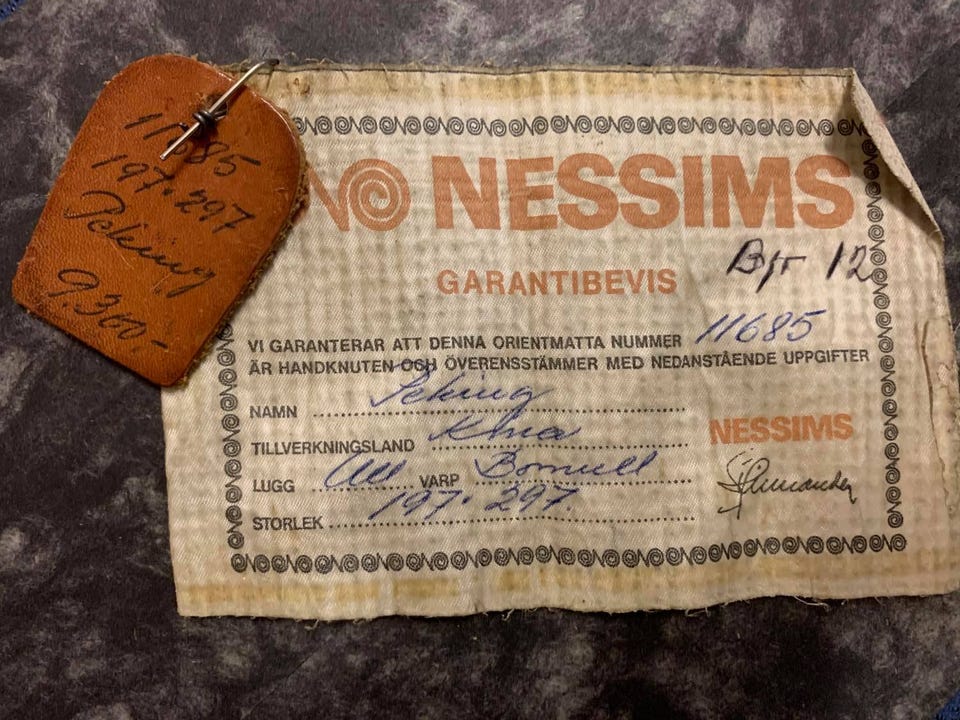 11685
197·297
Peking
9,300,-
NESSIMS
GARANTIBEVIS
12
VI GARANTERAR ATT DENNA ORIENTMATTA NUMMER 11685
ÄR HANDKNUTEN OCH ÖVERENSSTÄMMER MED NEDANSTÅENDE UPPGIFTER
NAMN Peking
TILLVERKNINGSLAND Kina
NESSIMS
LUGG Ull VARP Bomull
STORLEK 197·297